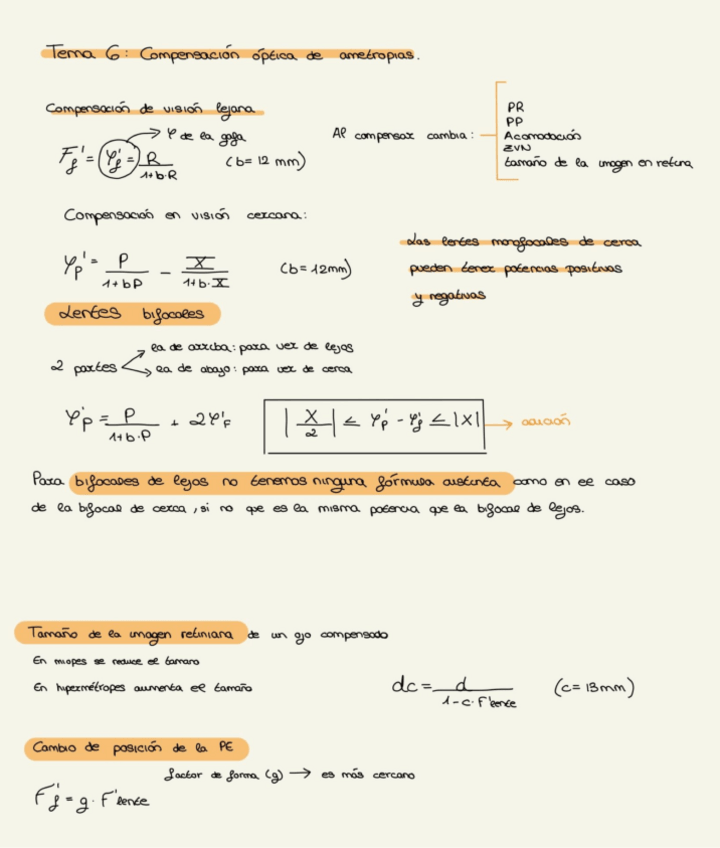 Tema 6: Compensación óptica de ametropías.
Compensación de visión lejana
φ de la gafa
F'f = φ'f = R / 1+b·R (b= 12 mm)
Al compensar cambia:
PR
PP
Acomodación
ZVN
tamaño de la imagen en retina
Compensación en visión cercana:
φp' = P / 1+bP - X / 1+b·X (b=12mm)
Las lentes monofocales de cerca
pueden tener potencias positivas
y negativas
Lentes bifocales
2 partes
la de arriba: para ver de lejos
la de abajo: para ver de cerca
φ'p = P / 1+b·P + 2φ'F
|X/2| ≤ φp' - φf' ≤ |X| → adición
Para bifocales de lejos no tenemos ninguna fórmula distinta como en el caso
de la bifocal de cerca, si no que es la misma potencia que la bifocal de lejos.
Tamaño de la imagen retiniana de un ojo compensado
En miopes se reduce el tamano
En hipermétropes aumenta el tamaño
dc = d / 1-c·F'lente (c= 13mm)
Cambio de posición de la PE
factor de forma (g) → es más cercano
F'f = g · F'lente